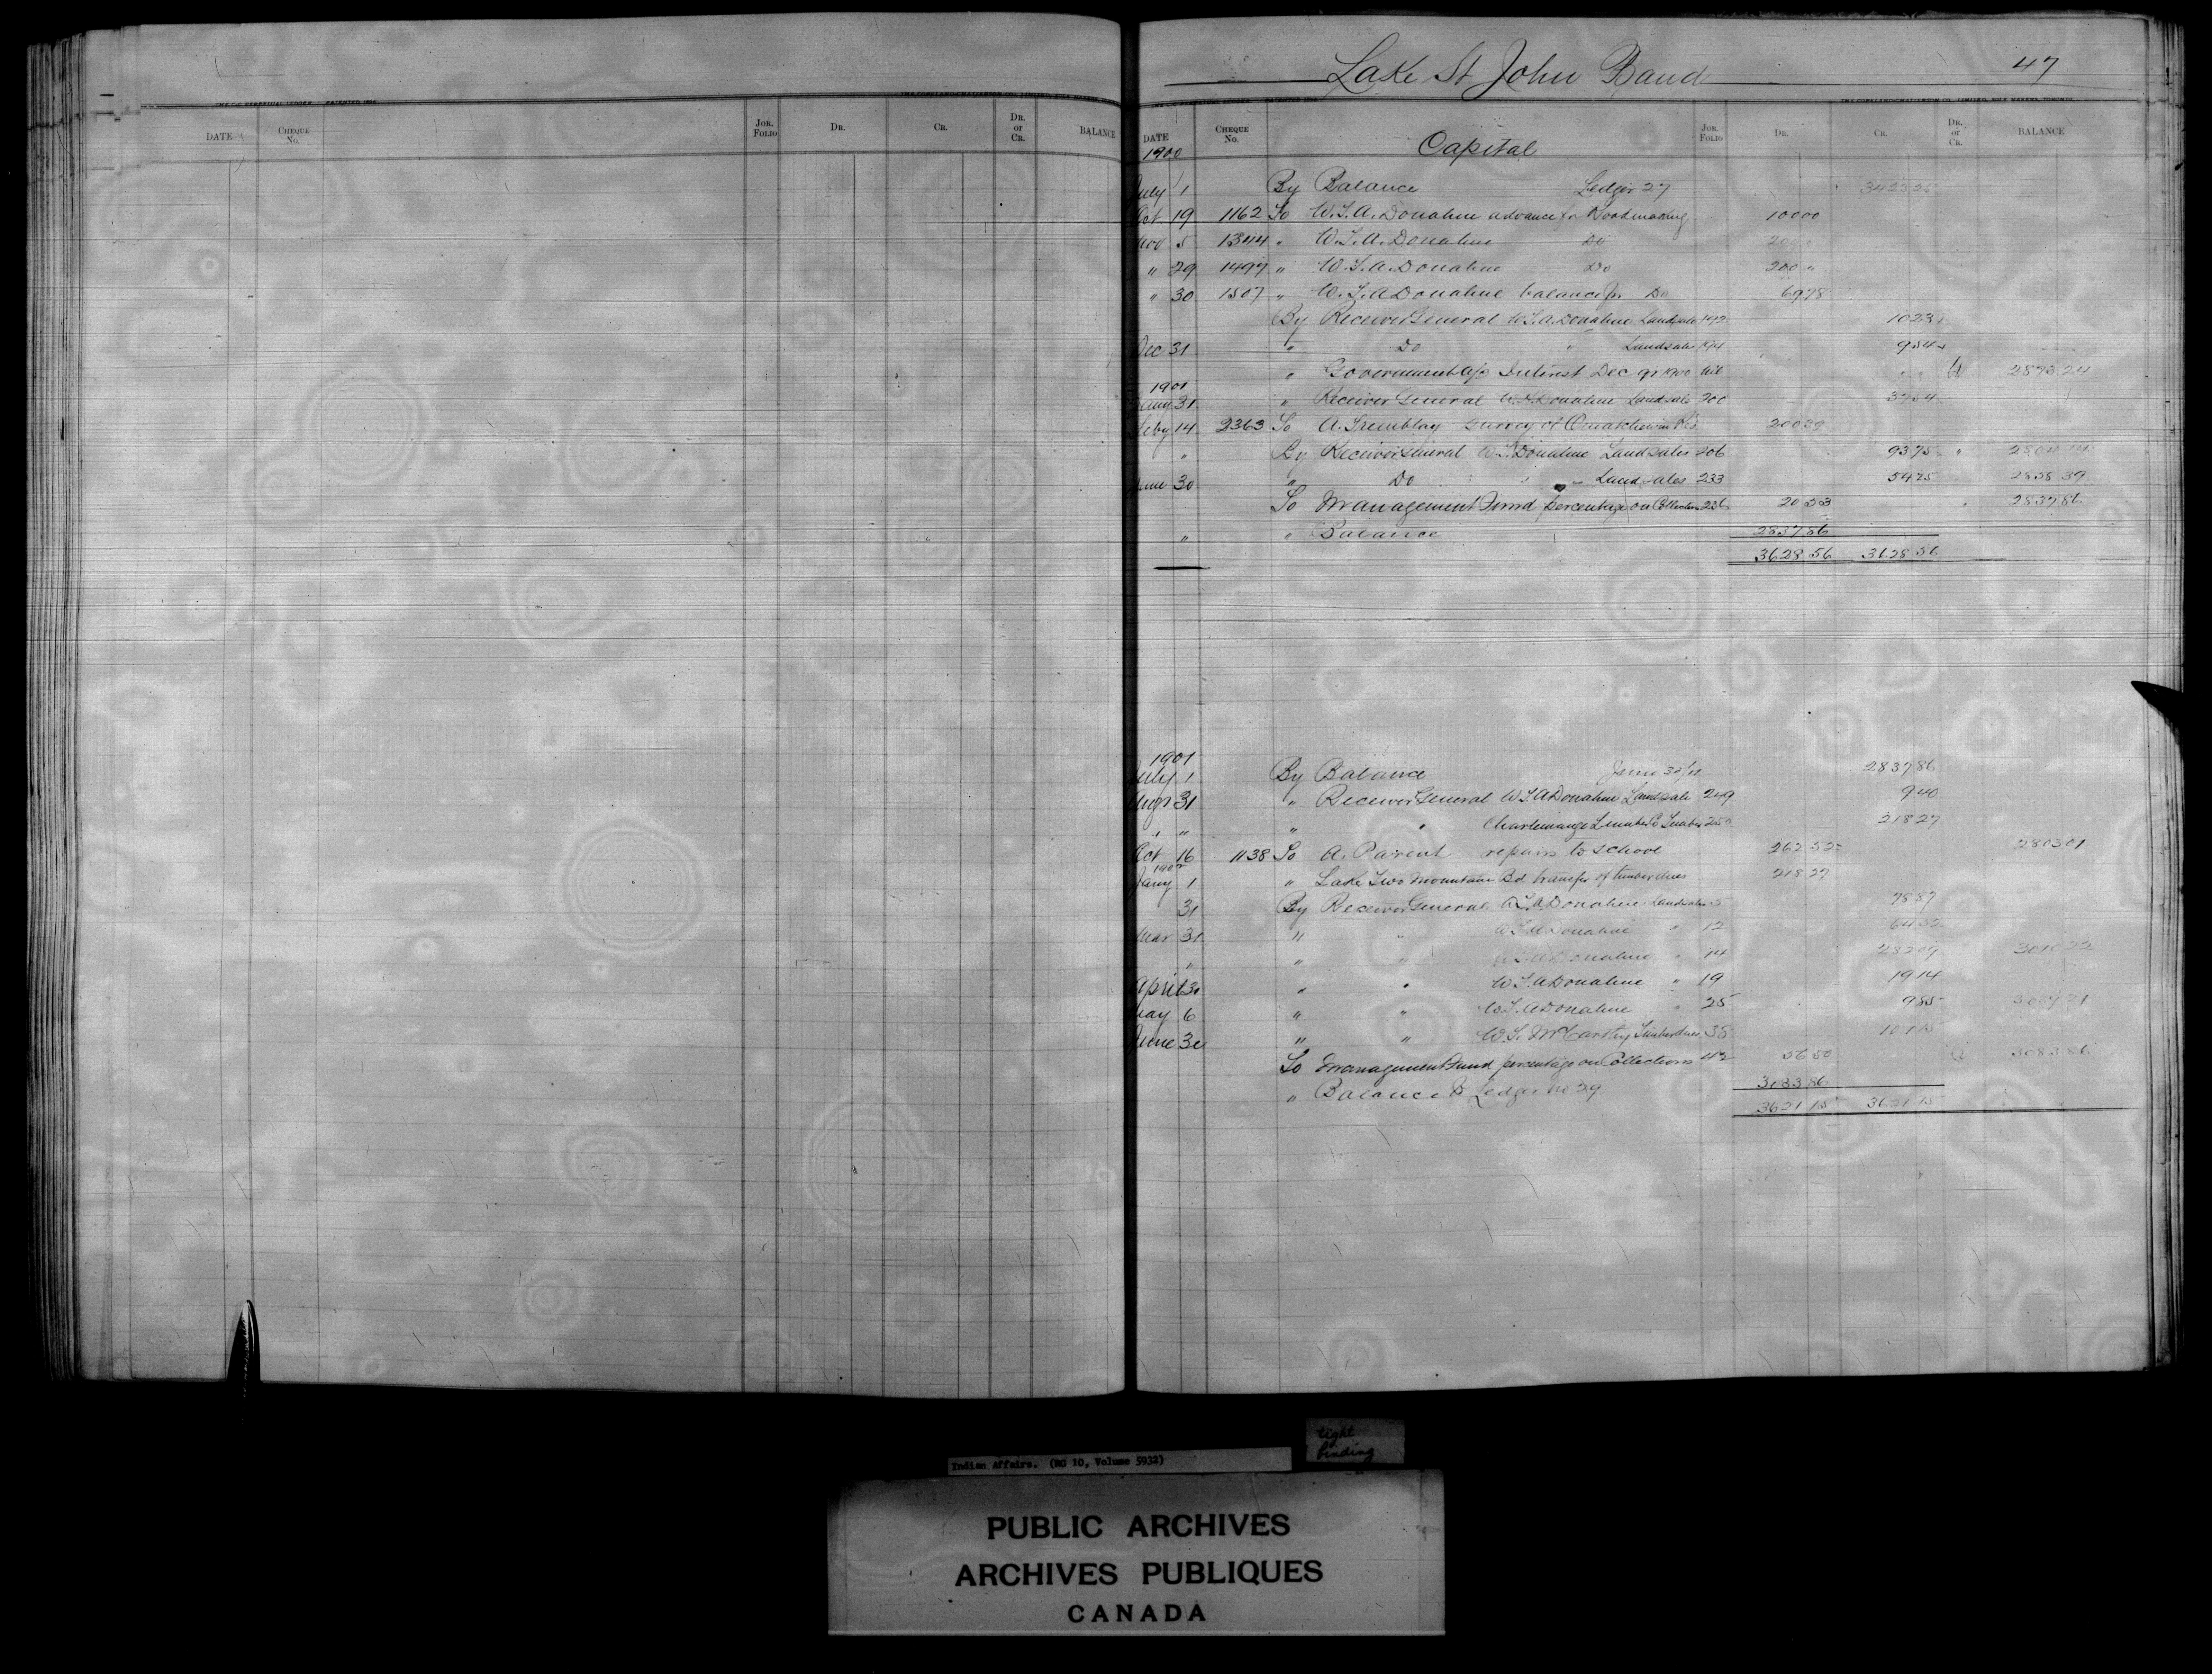 Lake St John Band 47
DATE CHEQUE No. JOR. FOLIO DR. CR. DR. or CR. BALANCE
DATE CHEQUE No. JOR. FOLIO DR. CR. DR. or CR. BALANCE
1900 Capital
July 1 By Balance Ledger 27 3423 25
Oct 19 1162 To W.T.A. Donahue advance for Roadmaking 100 00
Nov 5 1344 " W.T.A. Donahue Do
" 29 1497 " W.T.A. Donahue Do 200 "
" 30 1507 " W.T.A Donahue balance for Do 69 78
By Receiver General W.T.A. Donahue Landsale 192 10 23
Dec 31 " Do " Landsale 9 54
" Government a/c Interest Dec qr 1900 Cr 2873 24
1901
Jany 31 " Receiver General W.T. Donahue Landsale 200 37 54
Feby 14 2363 To A. Tremblay survey of Ouiatchouan Res 200 39
" By Receiver General W.T. Donahue Landsales 206 93 75 "
June 30 " Do " " Landsales 233 54 25 2858 39
To Management Fund percentage on Collections 236 20 53 " 2837 86
" " Balance 2837 86
3628 56 3628 56
1901
July 1 By Balance June 30/01 2837 86
Augt 31 " Receiver General W.T.A Donahue Landsale 249 9 40
" " " " Charlemagne Lumber Co Timber 250 218 27
Oct 16 1138 To A. Parent repairs to school 262 52 2803 01
1902
Jany 1 " Lake Two Mountains Bd transfer of timber dues 218 27
31 By Receiver General W.T.A Donahue Landsales 5 78 87
Mar 31 " " W.T.A Donahue " 12 64 32
" " " W.T.A Donahue " 14 282 09 3010 22
April 30 " " W.T.A Donahue " 19 19 14
May 6 " " W.T.A Donahue " 25 9 85
June 30 " " W.T. McCarthy Timber dues 38 101 15
To Management Fund percentage on Collections 42 56 50 3083 86
" Balance to Ledger No 29 3083 86
3621 15 3621 15
Indian Affairs. (RG 10, Volume 5932)
tight
binding
PUBLIC ARCHIVES
ARCHIVES PUBLIQUES
CANADA